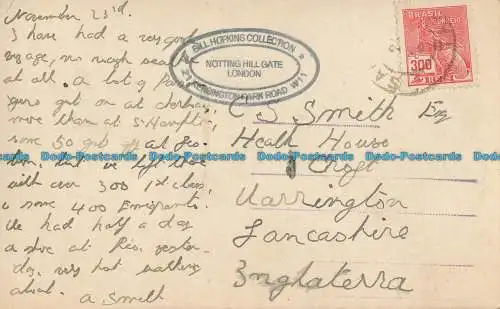 November 23rd.
I have had a very good
voyage, no rough sea
at all. A lot of Passen
gers got on at cherbourg
more than at S. Hampton,
some 50 got off at
with over 300 1st class,
& some 400 Emigrants.
We had half a day
a shore at Rio, yester-
day, very hot walking
about. A Smith
BILL HOPKINS COLLECTION
NOTTING HILL GATE
LONDON
KENSINGTON PARK ROAD W11
BRASIL
300
REIS
C S Smith Esq
Heath House
Croft
Warrington
Lancashire
Inghaterra
Dodo-Postcards Dodo-Postcards Dodo-Postcards Dodo-Postcards Dodo-Postcards